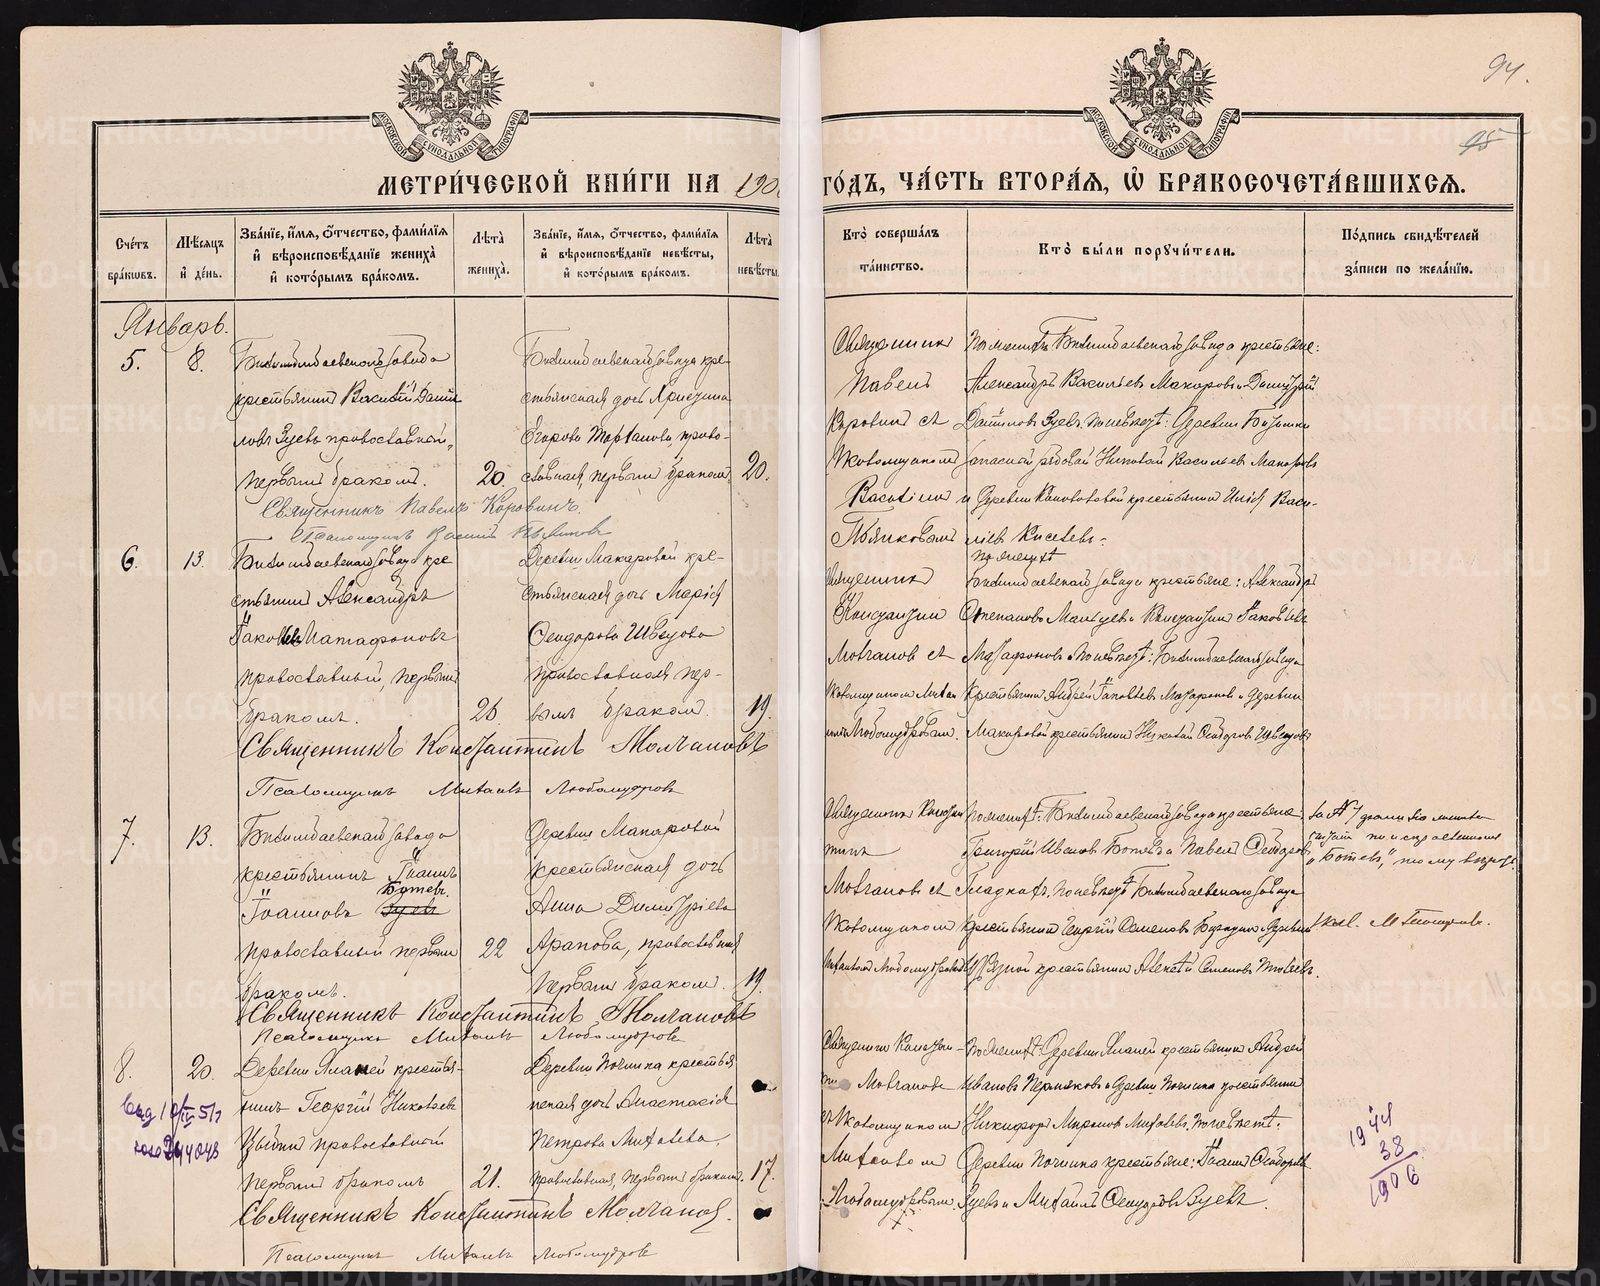 94.
95
МЕТРИ́ЧЕСКОЙ КНИ́ГИ НА 190
ГО́ДЪ, ЧА́СТЬ ВТОРА́Я, Ѡ҆ БРАКОСОЧЕТА́ВШИХСЯ.
Сче́тъ бра́кѡвъ.
Мѣ́сяцъ и҆ де́нь.
Зва́нїе, и҆́мя, ѻ҆́тчество, фами́лїя и҆ вѣроисповѣ́данїе жениха̀ и҆ кото́рымъ бра́комъ.
Лѣ́та жениха̀.
Зва́нїе, и҆́мя, ѻ҆́тчество, фами́лїя и҆ вѣроисповѣ́данїе невѣ́сты, и҆ кото́рымъ бра́комъ.
Лѣ́та невѣ́сты
Кто̀ соверша́лъ та́инство.
Кто̀ бы́ли порꙋчи́тели.
По́дпись свидѣ́телей за́писи по жела́нїю.
Январь.
5.
8.
Билимбаевскаго завода
крестьянинъ Василій Дани
ловъ Зуевъ православный,
первымъ бракомъ.
20.
Билимбаевскаго завода кре-
стьянская дочь Христина
Егорова, право-
славная, первымъ бракомъ
20.
Священникъ
Павелъ
Коровинъ съ
Псаломщикомъ
Василіемъ
Пьянковымъ
По женихѣ Билимбаевскаго завода крестьяне:
Александръ Васильевъ Макаровъ и Димитрій
Даниловъ Зуевъ. По невѣстѣ: деревни
запасной рядовой Николай Васильевъ Макаровъ
и деревни Коноваловой крестьянинъ Васи-
ліевъ Киселевъ.
Священникъ Павелъ Коровинъ.
Псаломщикъ Василій Пьянковъ
6.
13.
Билимбаевскаго завода кре
стьянинъ Александръ
Іаковлевъ Матафоновъ
православный, первымъ
бракомъ.
26.
Деревни Макаровой кре-
стьянская дочь Марія
Ѳеодорова Швецова
православная, пер-
вымъ бракомъ.
19.
Священникъ
Константинъ
Молчановъ съ
Псаломщикомъ Михаи
ломъ Любомудровымъ.
По женихѣ
Билимбаевскаго завода крестьяне: Александръ
Степановъ Мальцевъ и Константинъ Іаковлевъ
Матафоновъ. По невѣстѣ: Билимбаевскаго завода
крестьянинъ Андрей Іаковлевъ Матафоновъ и деревни
Макаровой крестьянинъ Николай Ѳеодоровъ Швецовъ
Священникъ Константинъ Молчановъ
Псаломщикъ Михаилъ Любомудровъ
7.
13.
Билимбаевскаго завода
крестьянинъ Іоаннъ
Ботевъ.
Іоанновъ Зуевъ
православный первымъ
бракомъ.
22
Деревни Макаровой
крестьянская дочь
Анна Димитріева
Арапова, православная
первымъ бракомъ.
19.
Священникъ Констан
тинъ
Молчановъ съ
Псаломщикомъ
Михаиломъ Любомудровымъ
По женихѣ: Билимбаевскаго завода крестьяне
Григорій Ивановъ Ботевъ и Павелъ Ѳеодоровъ
Гладкихъ. По невѣстѣ Билимбаевскаго завода
крестьянинъ Георгій Семеновъ и деревни
крестьянинъ Алексѣй Семеновъ
За № 7
читать по исправленію
"Ботевъ,"
Священникъ Константинъ Молчановъ
Псаломщикъ Михаилъ Любомудровъ
8.
20.
Деревни крестья-
нинъ Георгій Николаевъ
православный
первымъ бракомъ
21.
Деревни Починка крестья
нская дочь Анастасія
Петрова Михалева.
православная, первымъ бракомъ.
17.
Священникъ Констан-
тинъ Молчановъ
съ Псаломщикомъ
Михаиломъ
Любомудровымъ.
По женихѣ: Деревни крестьянинъ Андрей
Ивановъ Пермяковъ и деревни Починка крестьянинъ
Никифоръ Мироновъ Михалевъ. По невѣстѣ:
Деревни Починка крестьяне: Іоаннъ Ѳеодоровъ
Зуевъ и Михаилъ Ѳеодоровъ Зуевъ.
Священникъ Константинъ Молчановъ.
Псаломщикъ Михаилъ Любомудровъ
1944
38
1906
METRIKI.GASO-URAL.RU